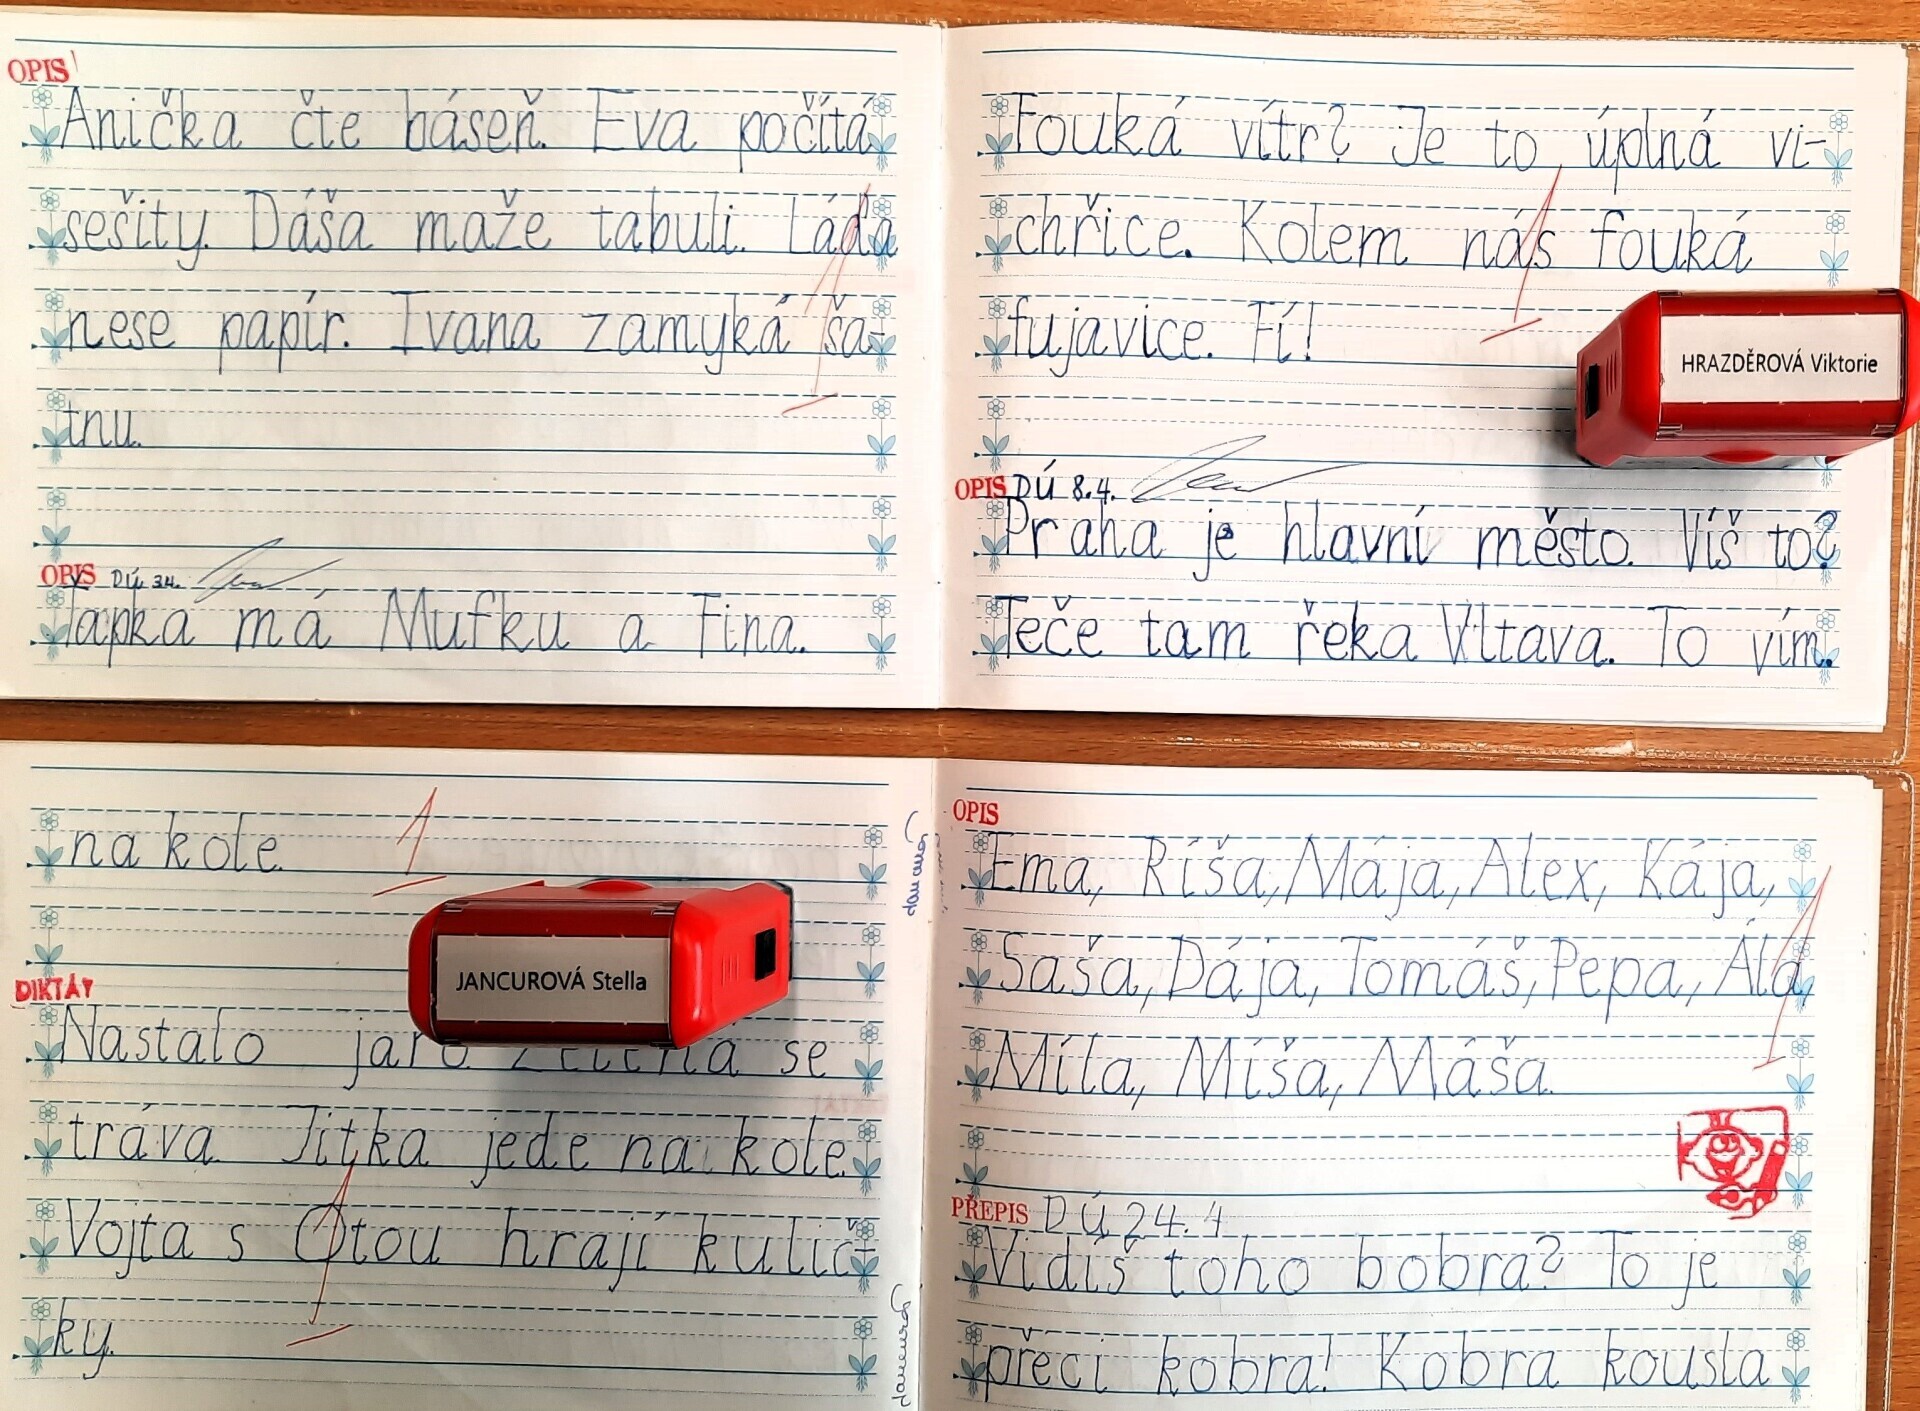 OPIS
Anička čte báseň. Eva počítá
sešity. Dáša maže tabuli. Láďa
nese papír. Ivana zamyká ša-
tnu.
OPIS DÚ 3.4.
Ťapka má Mufku a Fina.
Fouká vítr? Je to úplná vi-
chřice. Kolem nás fouká
fujavice. Fí!
HRAZDĚROVÁ Viktorie
OPIS DÚ 8.4.
Praha je hlavní město. Víš to?
Teče tam řeka Vltava. To vím.
na kole.
1
JANCUROVÁ Stella
DIKTÁT
Nastalo jaro zelená se
tráva. Jitka jede na kole.
Vojta s Otou hrají kulič-
ky.
1
Jancurová
Jancurová
OPIS
Ema, Ríša, Mája, Alex, Kája,
Saša, Dája, Tomáš, Pepa, Ála,
Míla, Míša, Máša.
1
PŘEPIS DÚ 24.4
Vidíš toho bobra? To je
přeci kobra! Kobra kousla